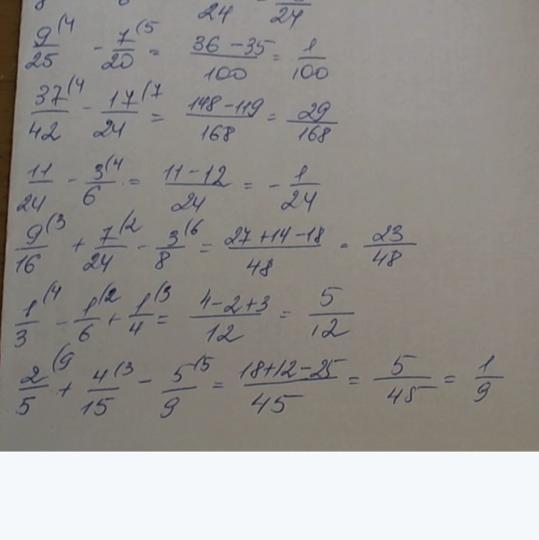 24 24
9/25 (4 - 7/20 (5 = 36-35/100 = 1/100
37/42 (4 - 17/24 (7 = 148-119/168 = 29/168
11/24 - 3/6 (4 = 11-12/24 = - 1/24
9/16 (3 + 7/24 (2 - 3/8 (6 = 27+14-18/48 = 23/48
1/3 (4 - 1/6 (2 + 1/4 (3 = 4-2+3/12 = 5/12
2/5 (9 + 4/15 (3 - 5/9 (5 = 18+12-25/45 = 5/45 = 1/9